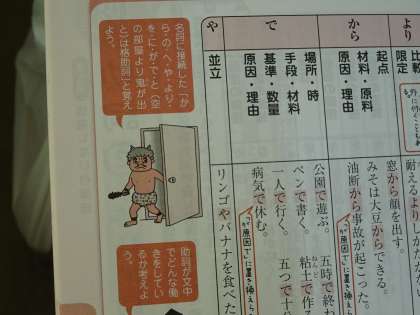 より
比較
限定
から
起点
材料・原料
原因・理由
窓から顔を出す。
みそは大豆からできる。
油断から事故が起こった。
で
場所・時
手段・材料
基準・数量
原因・理由
公園で遊ぶ。 五時で終わ
ペンで書く。 粘土で作
ねんど
一人で行く。 五つで十
病気で休む。
「が原因で」に置き換え
や
並立
リンゴやバナナを食べた
名詞に接続した「か
ら・の・へ・や・より・
を・に・が・で・と(空
の部屋より鬼が出
と)」は格助詞」と覚え
よう。
助詞が文中
でどんな働
きをしてい
るか考えよ
う。